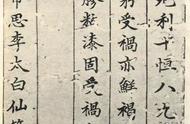 利十恒八九
受禍亦鮮禍
膠黏漆固受禍
思李太白仙